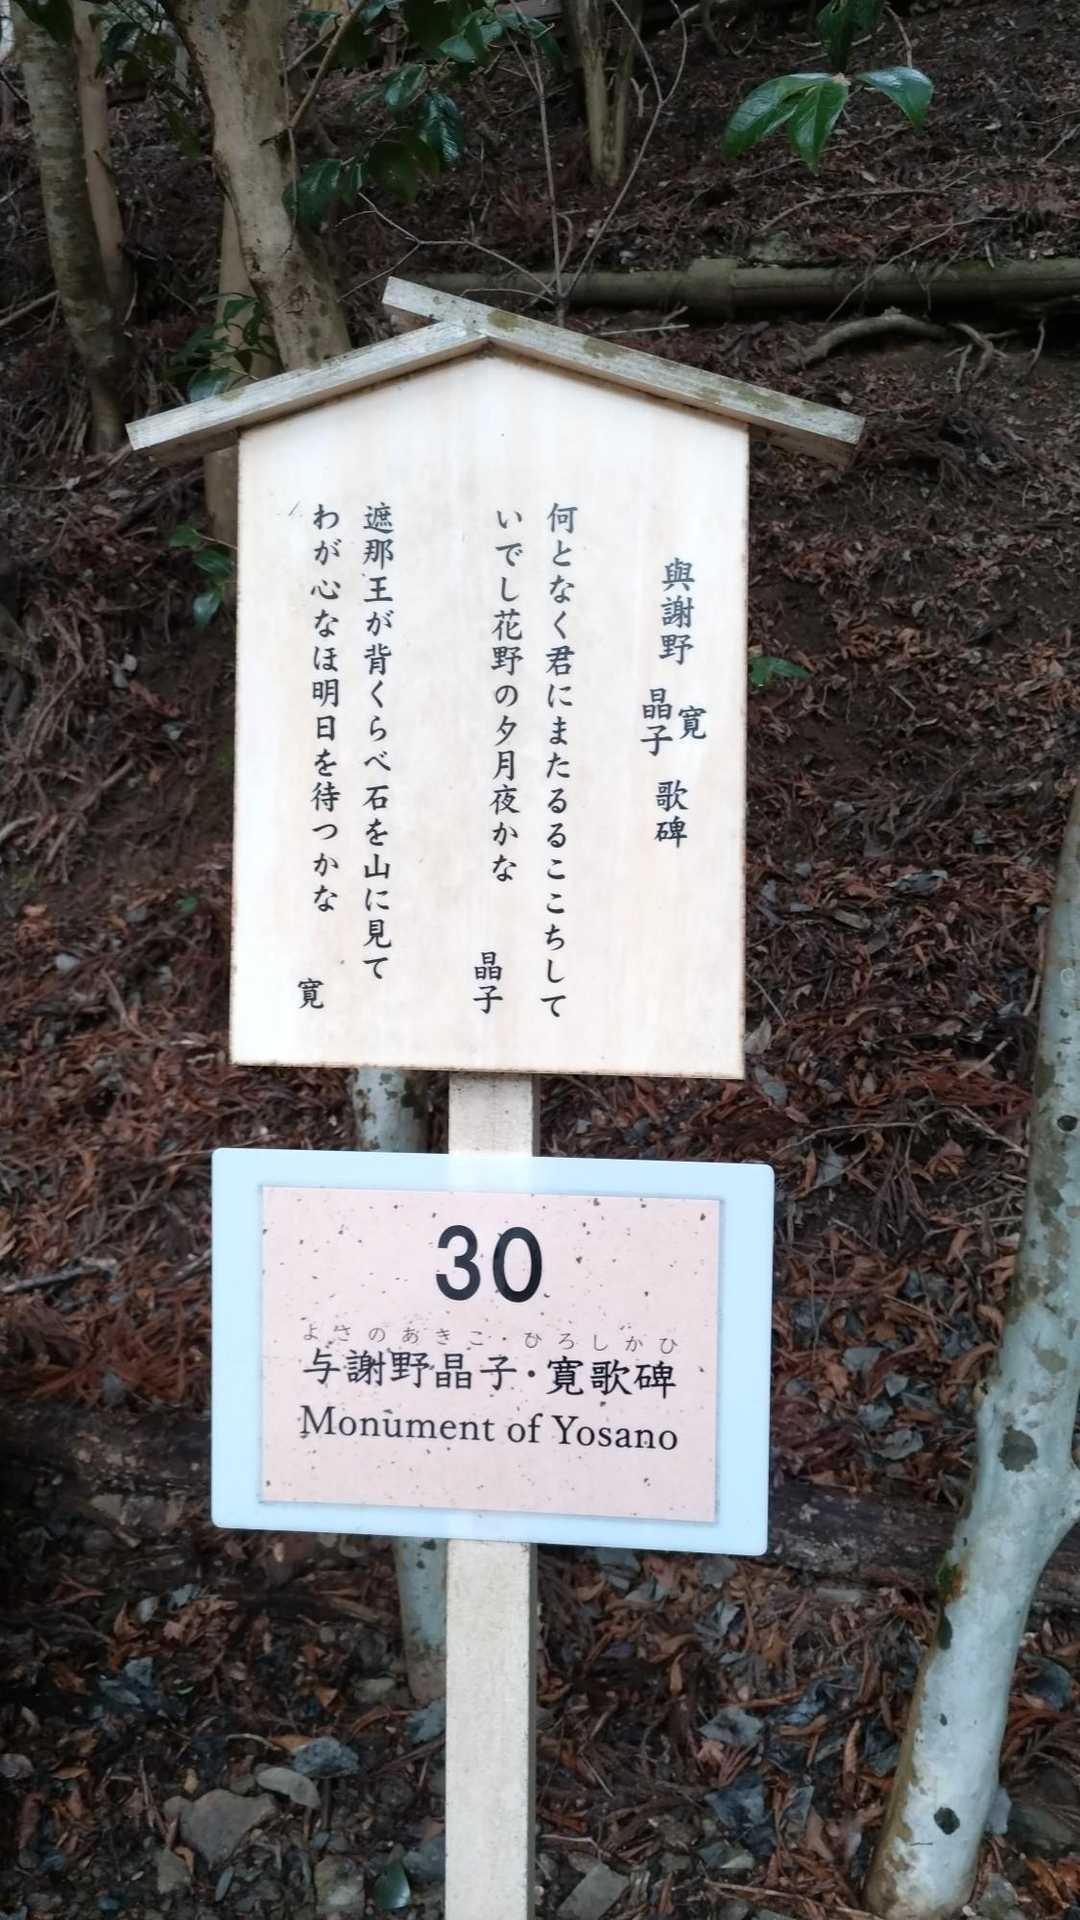 與謝野 寛 晶子 歌碑
何となく君にまたるるここちして
いでし花野の夕月夜かな 晶子
遮那王が背くらべ石を山に見て
わが心なほ明日を待つかな 寛
30
よさのあきこ・ひろしかひ
与謝野晶子・寛歌碑
Monument of Yosano